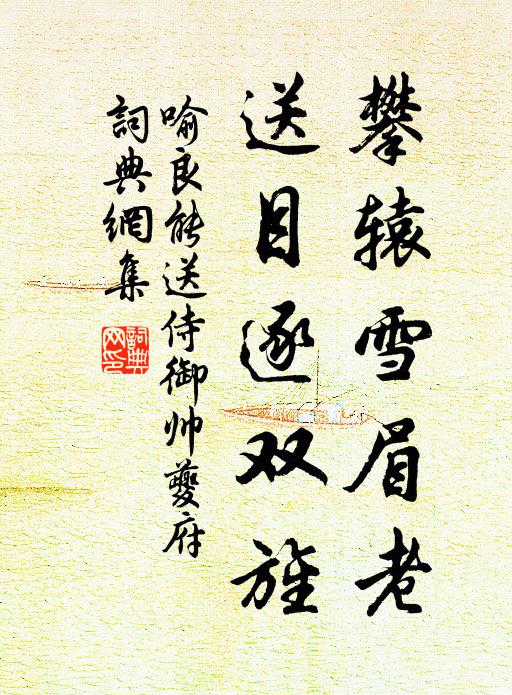 攀辕雪眉老
送目逐双旌
喻良能送侍御帅夔府
詞典網集
詞典
网印